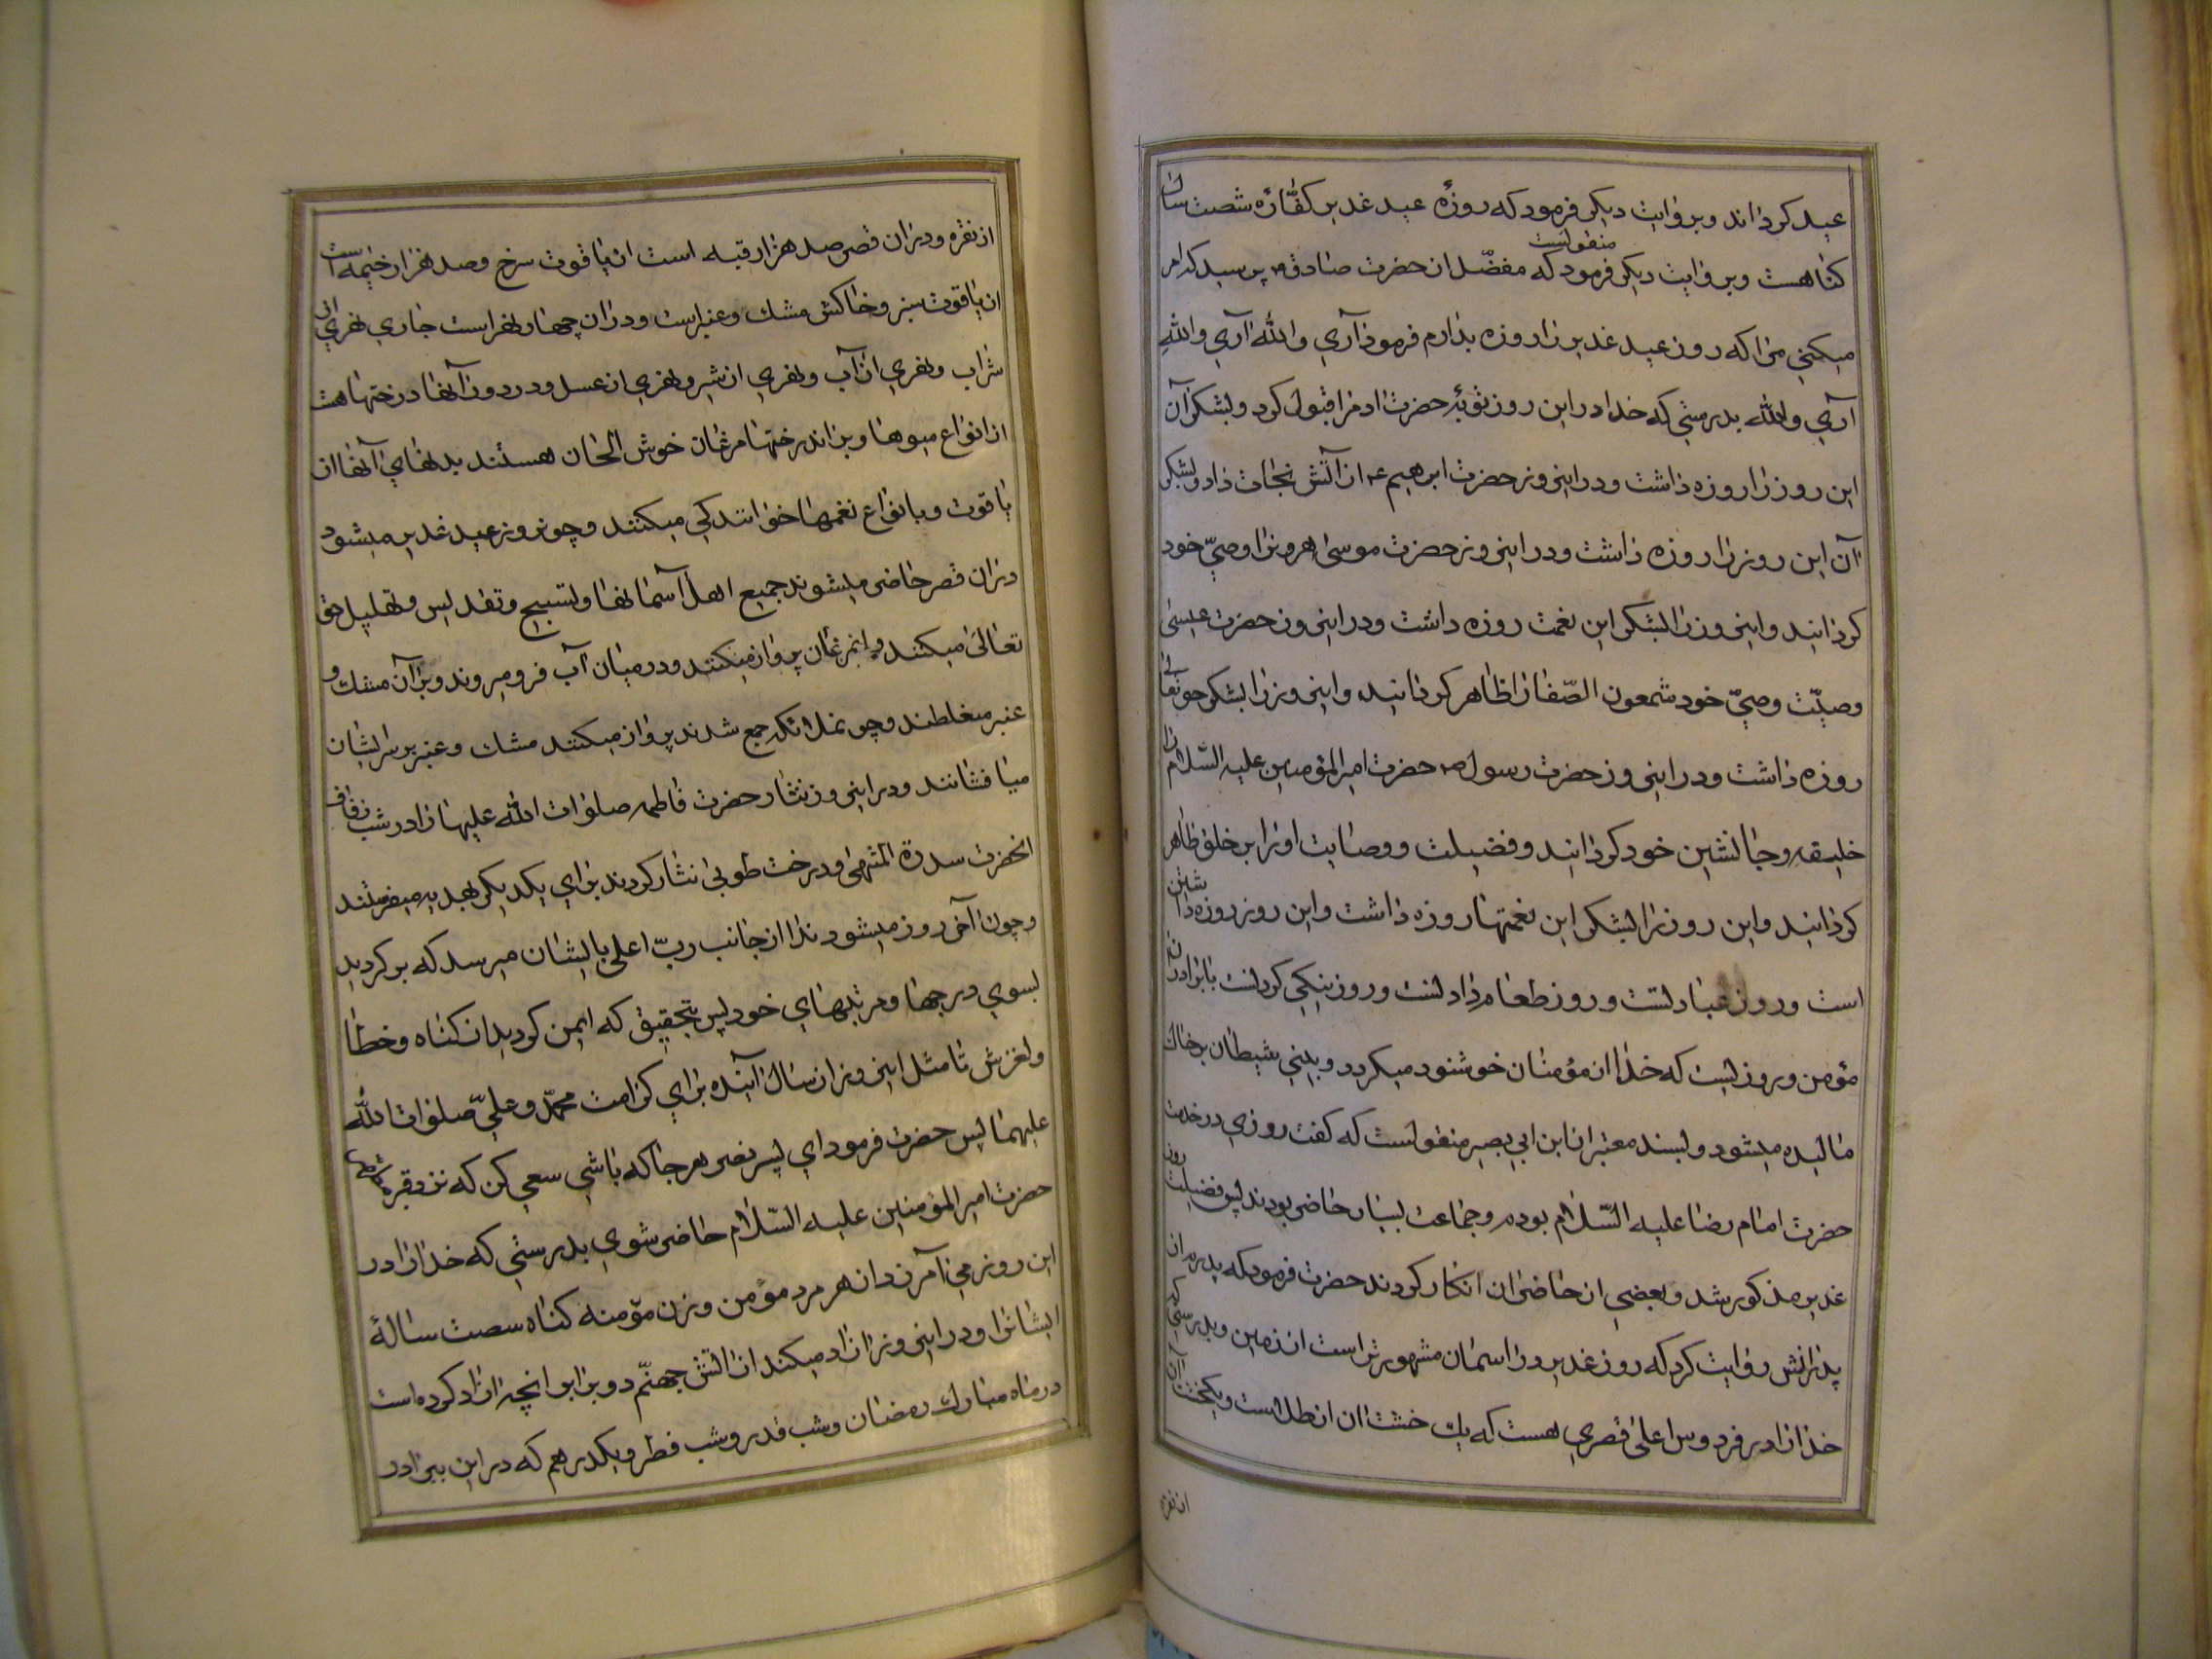 عید کرداند و بروایت دیگر فرمود که روزهٔ عید غدیر کفّارهٔ شصت سال
کناهست و بروایت دیکر فرمود که منقولست مفضّل از حضرت صادق ع پرسید که امر
میکنی مرا که روز عید غدیر را روزه بدارم فرمود آری والله آری والله
آری والله بدرستی که خدا در این روز توبهٔ حضرت ادم را قبول کرد و بشکر آن
این روز را روزه داشت و در اینروز حضرت ابرهیم ع از آتش نجات داد و بشکر
آن این روز را روزه داشت و در اینروز حضرت موسی هرون را وصیّ خود
کردانید و اینروز را بشکر این نعمت روزه داشت و در اینروز حضرت عیسی
وصیّت وصیّ خود شمعون الصّفا را ظاهر کردانید و اینروز را بشکر حق تعالی
روزه داشت و در اینروز حضرت رسول ص حضرت امیر المؤمنین علیه السّلام را
خلیفه و جانشین خود کردانید و فضیلت و وصایت او را بر خلق ظاهر
کردانید و این روز را بشکر این نعمتها روزه داشت و این روز روزه داشتن
است و روز عبادتست و روز طعام دادنست و روز نیکی کردنست با برادران
مؤمن و روزیست که خدا از مؤمنان خوشنود میکردد و بینی شیطان بر خاک
مالیده میشود و بسند معتبر از ابن ابی بصیر منقولست که کفت روزی در خدمت
حضرت امام رضا علیه السّلام بودم و جماعت بسیار حاضر بودند پس فضیلت روز
غدیر مذکور شد و بعضی از حاضران انکار کردند حضرت فرمود که پدرم از
پدرانش روایت کرد که روز غدیر در اسمان مشهورتر است از زمین و بدرستی که
خدا را در فردوس اعلی قصری هست که یک خشت آن از طلاست و یکخشت آن
از نقره
از نقره و در ان قصر صد هزار قبه است از یاقوت سرخ و صد هزار خیمه است
از یاقوت سبز و خاکش مشک و عنبر است و در ان چهار نهر است جاری نهری از
شراب و نهری از آب و نهری از شیر و نهری از عسل و در دور آنها درختها هست
از انواع میوها و بر اندرختها مرغان خوش الحان هستند بدنهای آنها از
یاقوت و بانواع نغمها خوانندکی میکنند و چون روز عید غدیر میشود
در ان قصر حاضر میشوند جمیع اهل آسمانها و تسبیح و تقدیس و تهلیل حق
تعالی میکنند و انمرغان پرواز میکنند و در میان آب فرو میروند و بر آن مشک و
عنبر میغلطند و چون ملائکه جمع شدند پرواز میکنند مشک و عنبر بر سر ایشان
میافشانند و در اینروز نثار حضرت فاطمه صلوات الله علیها را در شب زفاف
انحضرت سدرة المنتهی و درخت طوبی نثار کردند برای یکدیکر بهدیه میفرستند
و چون آخر روز میشود ندا از جانب ربّ اعلی بایشان میرسد که بر کردید
بسوی درجها و مرتبهای خود پس بتحقیق که ایمن کردید از کناه و خطا
و لغزش تا مثل اینروز از سال آینده برای کرامت محمّد و علیّ صلوات الله
علیهما پس حضرت فرمود ای پسر نصر هر جا که باشی سعی کن که نزد قبر مطهر
حضرت امیر المؤمنین علیه السّلام حاضر شوی بدرستی که خدا را در
این روز می آمرزد از هر مرد مؤمن و زن مؤمنه کناه سصت سالهٔ
ایشانرا و در اینروز ازاد میکند از آتش جهنّم دو برابر انچه ازاد کرده است
در ماه مبارک رمضان و شب قدر و شب فطر و یکدرهم که در این ببرادر